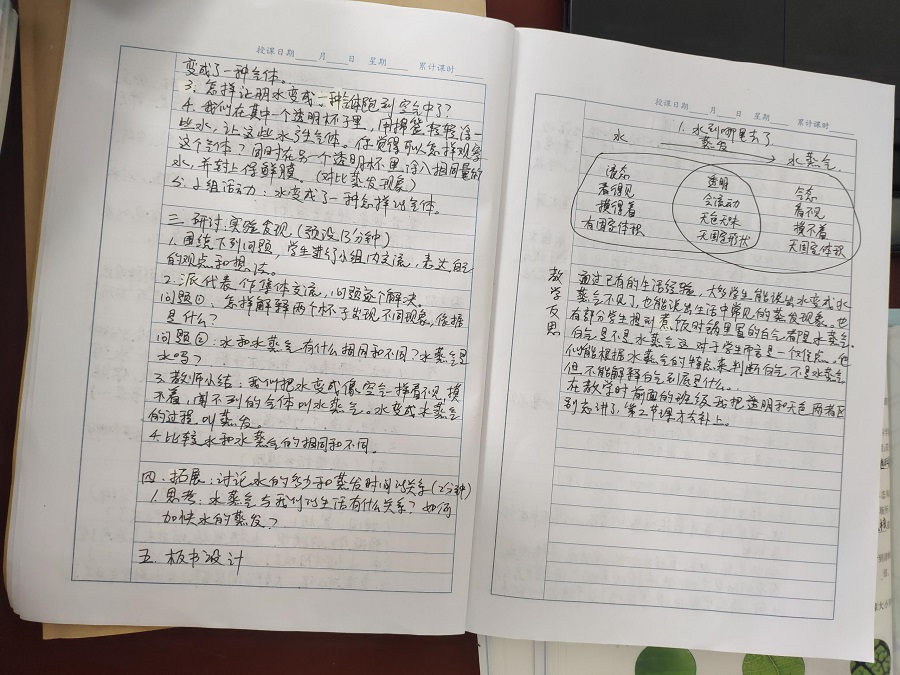 授课日期 月 日 星期 累计课时
变成了一种气体。
3. 怎样证明水变成一种气体跑到空气中了?
4. 我们在其中一个透明杯子里,用棉签轻轻涂一
些水,让这些水变气体。你觉得可以怎样观察
这个气体?同时在另一个透明杯里涂入相同量的
水,并封上保鲜膜。(对比蒸发现象)
5. 小组活动:水变成了一种怎样的气体。
三. 研讨:实验发现(预设13分钟)
1. 围绕下列问题,学生进行小组内交流,表达自己
的观点和想法。
2. 派代表作集体交流,问题逐个解决。
问题①:怎样解释两个杯子发现不同现象,依据
是什么?
问题②:水和水蒸气有什么相同和不同?水蒸气是
水吗?
3. 教师小结:我们把水变成像空气一样看不见,摸
不着,闻不到的气体叫水蒸气。水变成水蒸气
的过程叫蒸发。
4. 比较水和水蒸气的相同和不同。
四. 拓展:讨论水的多少和蒸发时间的关系(2分钟)
1. 思考:水蒸气与我们的生活有什么关系?如何
加快水的蒸发?
五. 板书设计
授课日期 月 日 星期 累计课时
1. 水到哪里去了
水 蒸发 水蒸气
液态 透明 气态
看得见 会流动 看不见
摸得着 无色无味 摸不着
有固定体积 无固定形状 无固定体积
教学反思
通过已有的生活经验,大多学生能说出水变成水
蒸气不见了,也能说出生活中常见的蒸发现象。也
有部分学生提到煮饭时锅里冒的白气都是水蒸气。
白气是不是水蒸气这对于学生而言是一个难点。他
们能根据水蒸气的特点来判断白气不是水蒸气
但不能解释白气到底是什么。
在教学时前面的班级我把透明和无色两者区
别忘讲了,第二节课才去补上。